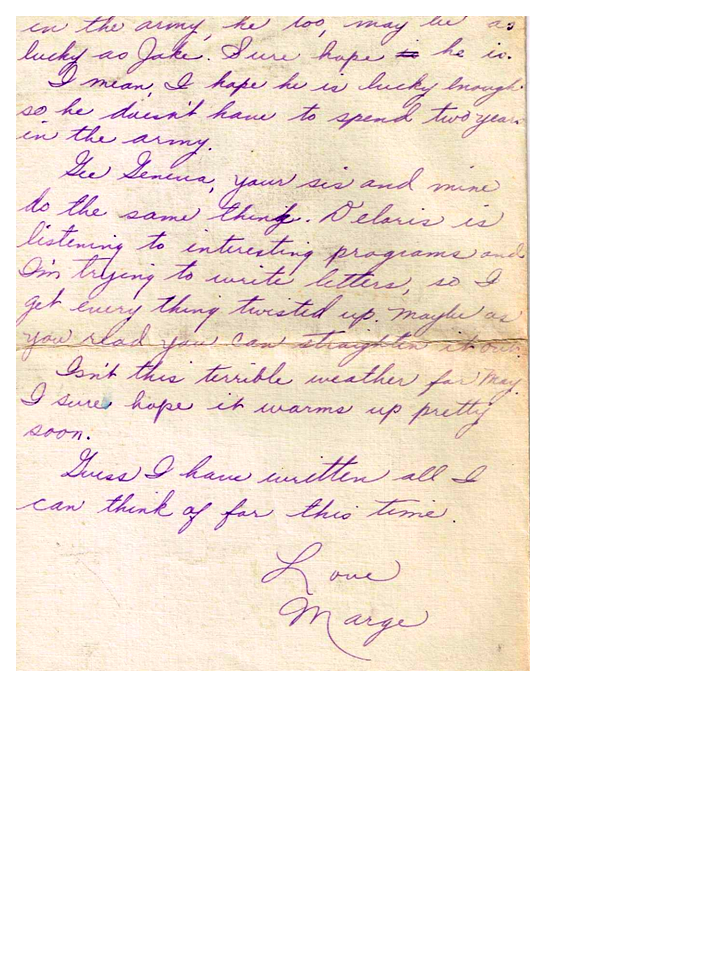 in the army, he too, may be as
lucky as Jake. Sure hope is he is.
I mean, I hope he is lucky enough
so he doesn't have to spend two years
in the army.
Gee Geneva, your sis and mine
do the same thing. Delaris is
listening to interesting programs and
I'm trying to write letters, so I
get every thing twisted up. Maybe as
you read you can straighten it out.
Isn't this terrible weather for May.
I sure hope it warms up pretty
soon.
Guess I have written all I
can think of for this time.
Love
Marge